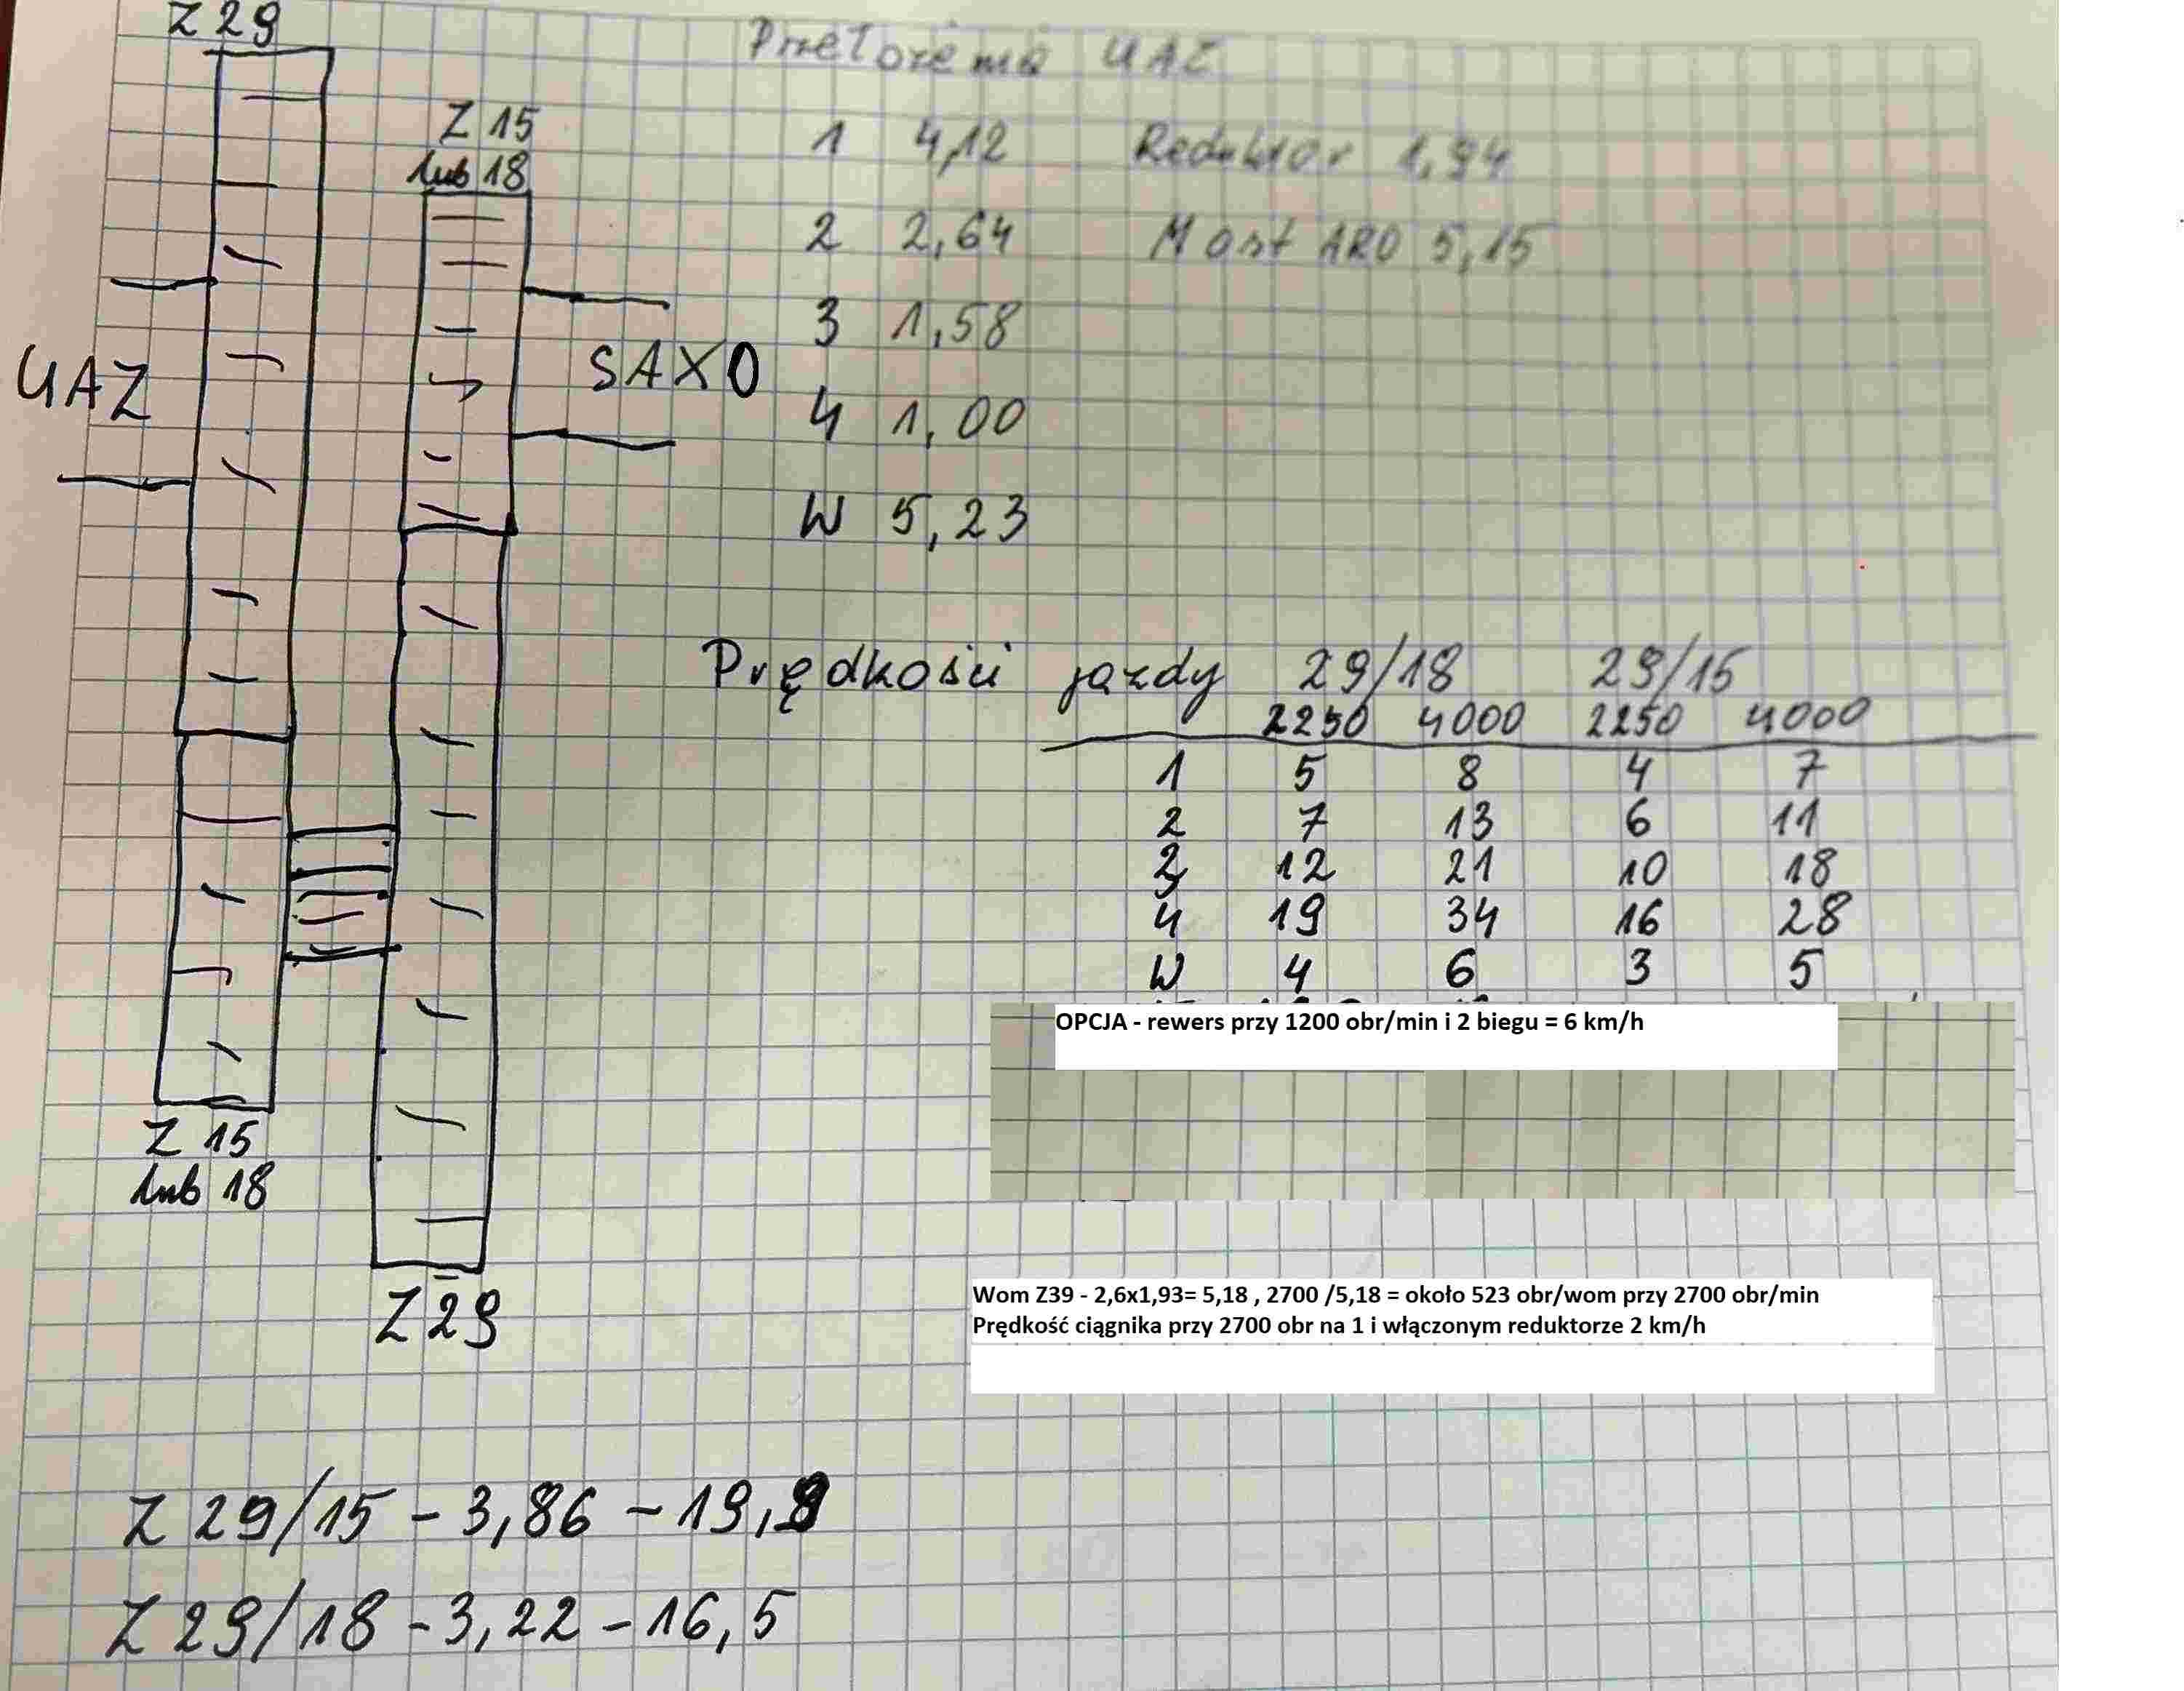 Z 29
Przełożenia UAZ
Z 15
lub 18
1 4,12 Reduktor 1,94
2 2,64 Most ARO 5,15
3 1,58
UAZ
SAXO
4 1,00
W 5,23
Prędkości jazdy 29/18 29/15
2250 4000 2250 4000
1 5 8 4 7
2 7 13 6 11
3 12 21 10 18
4 19 34 16 28
W 4 6 3 5
OPCJA - rewers przy 1200 obr/min i 2 biegu = 6 km/h
Z 15
lub 18
Z 29
Wom Z39 - 2,6x1,93= 5,18 , 2700 /5,18 = około 523 obr/wom przy 2700 obr/min
Prędkość ciągnika przy 2700 obr na 1 i włączonym reduktorze 2 km/h
Z 29/15 - 3,86 - 19,9
Z 29/18 - 3,22 - 16,5